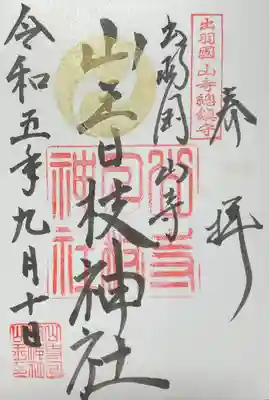 奉拝
出羽國 山寺總鎮守
出羽国山寺
山王日枝神社
令和五年九月十日